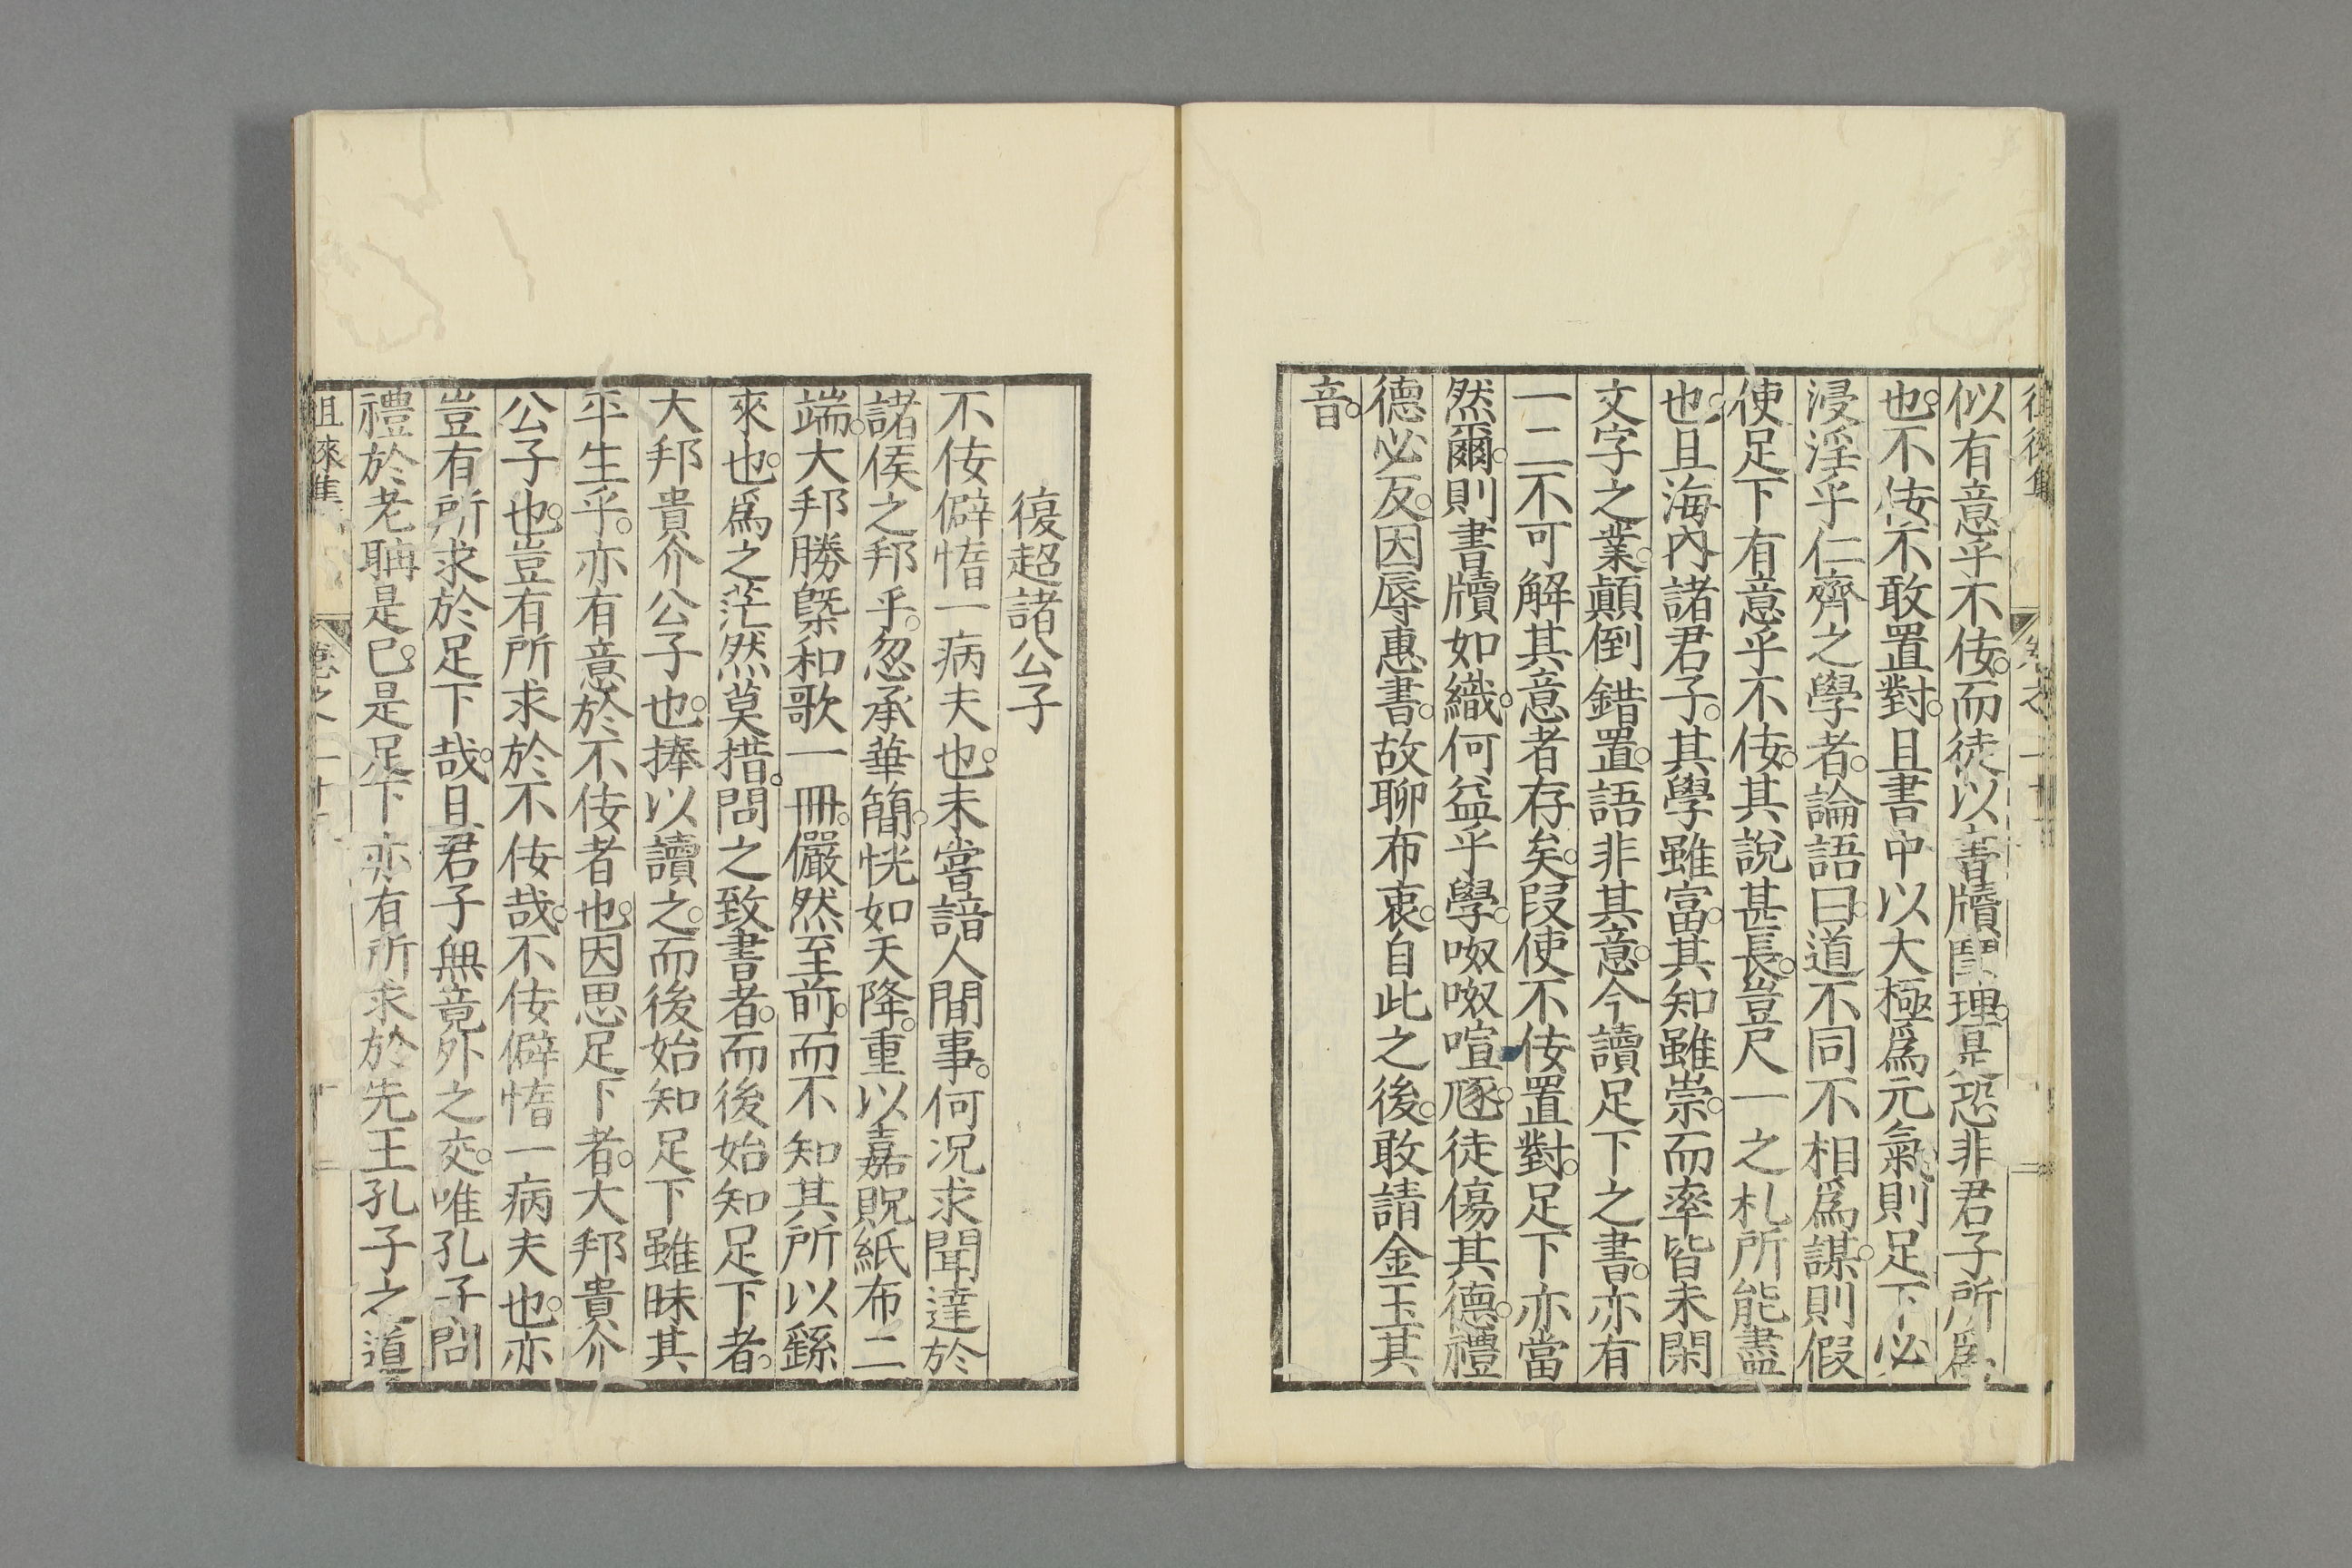 似有意乎不佞。而徒以書牘鬪理。是恐非君子所爲
也。不佞不敢置對。且書中以大極爲元氣。則足下必
浸淫乎仁齊之學者。論語曰。道不同不相爲謀。則假
使足下有意乎不佞。其說甚長。豈尺一之札所能盡
也。且海內諸君子。其學雖富。其知雖崇。而率皆未閑
文字之業。顚倒錯置。語非其意。今讀足下之書。亦有
一二不可解其意者存矣。叚使不佞置對。足下亦當
然爾。則書牘如織。何益乎學。呶呶喧豗。徒傷其德。禮
德必反。因辱惠書。故聊布衷。自此之後。敢請金玉其
音。
復超諸公子
不佞僻惰一病夫也。未嘗諳人間事。何况求聞達於
諸侯之邦乎。忽承華簡。恍如天降。重以嘉貺紙布二
端。大邦勝槩和歌一冊。儼然至前。而不知其所以繇
來也。爲之茫然莫措。問之致書者。而後始知足下者。
大邦貴介公子也。捧以讀之。而後始知足下雖昧其
平生乎。亦有意於不佞者也。因思足下者。大邦貴介
公子也。豈有所求於不佞哉。不佞僻惰一病夫也。亦
豈有所求於足下哉。且君子無竟外之交。唯孔子問
禮於老聃是已。是足下亦有所求於先王孔子之道
徂徠集 卷之二十